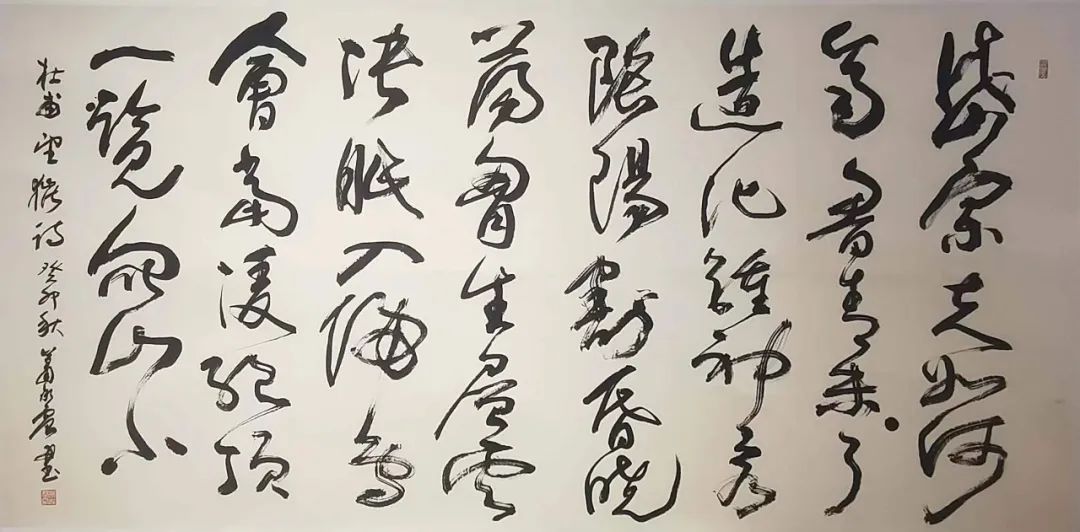 岱宗夫如何
齊魯青未了
造化鍾神秀
陰陽割昏曉
蕩胷生層雲
決眦入歸鳥
會當凌絕頂
一覽眾山小
杜甫望嶽詩 癸卯秋 書